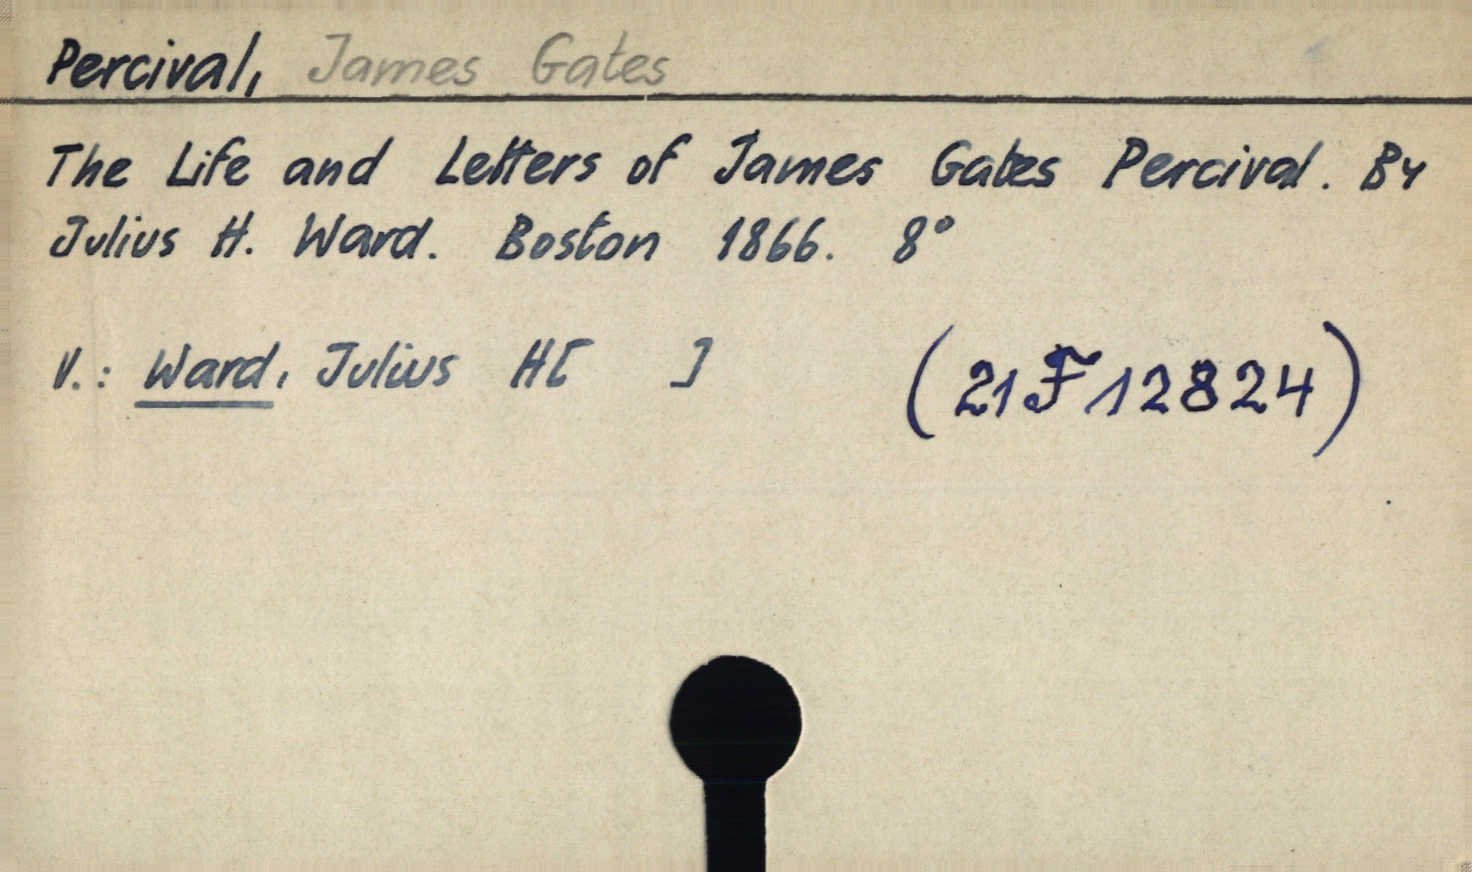 Percival, James Gates
The Life and Letters of James Gates Percival. By
Julius H. Ward. Boston 1866. 8°
V.: Ward, Julius H[ ]
(21F12824)